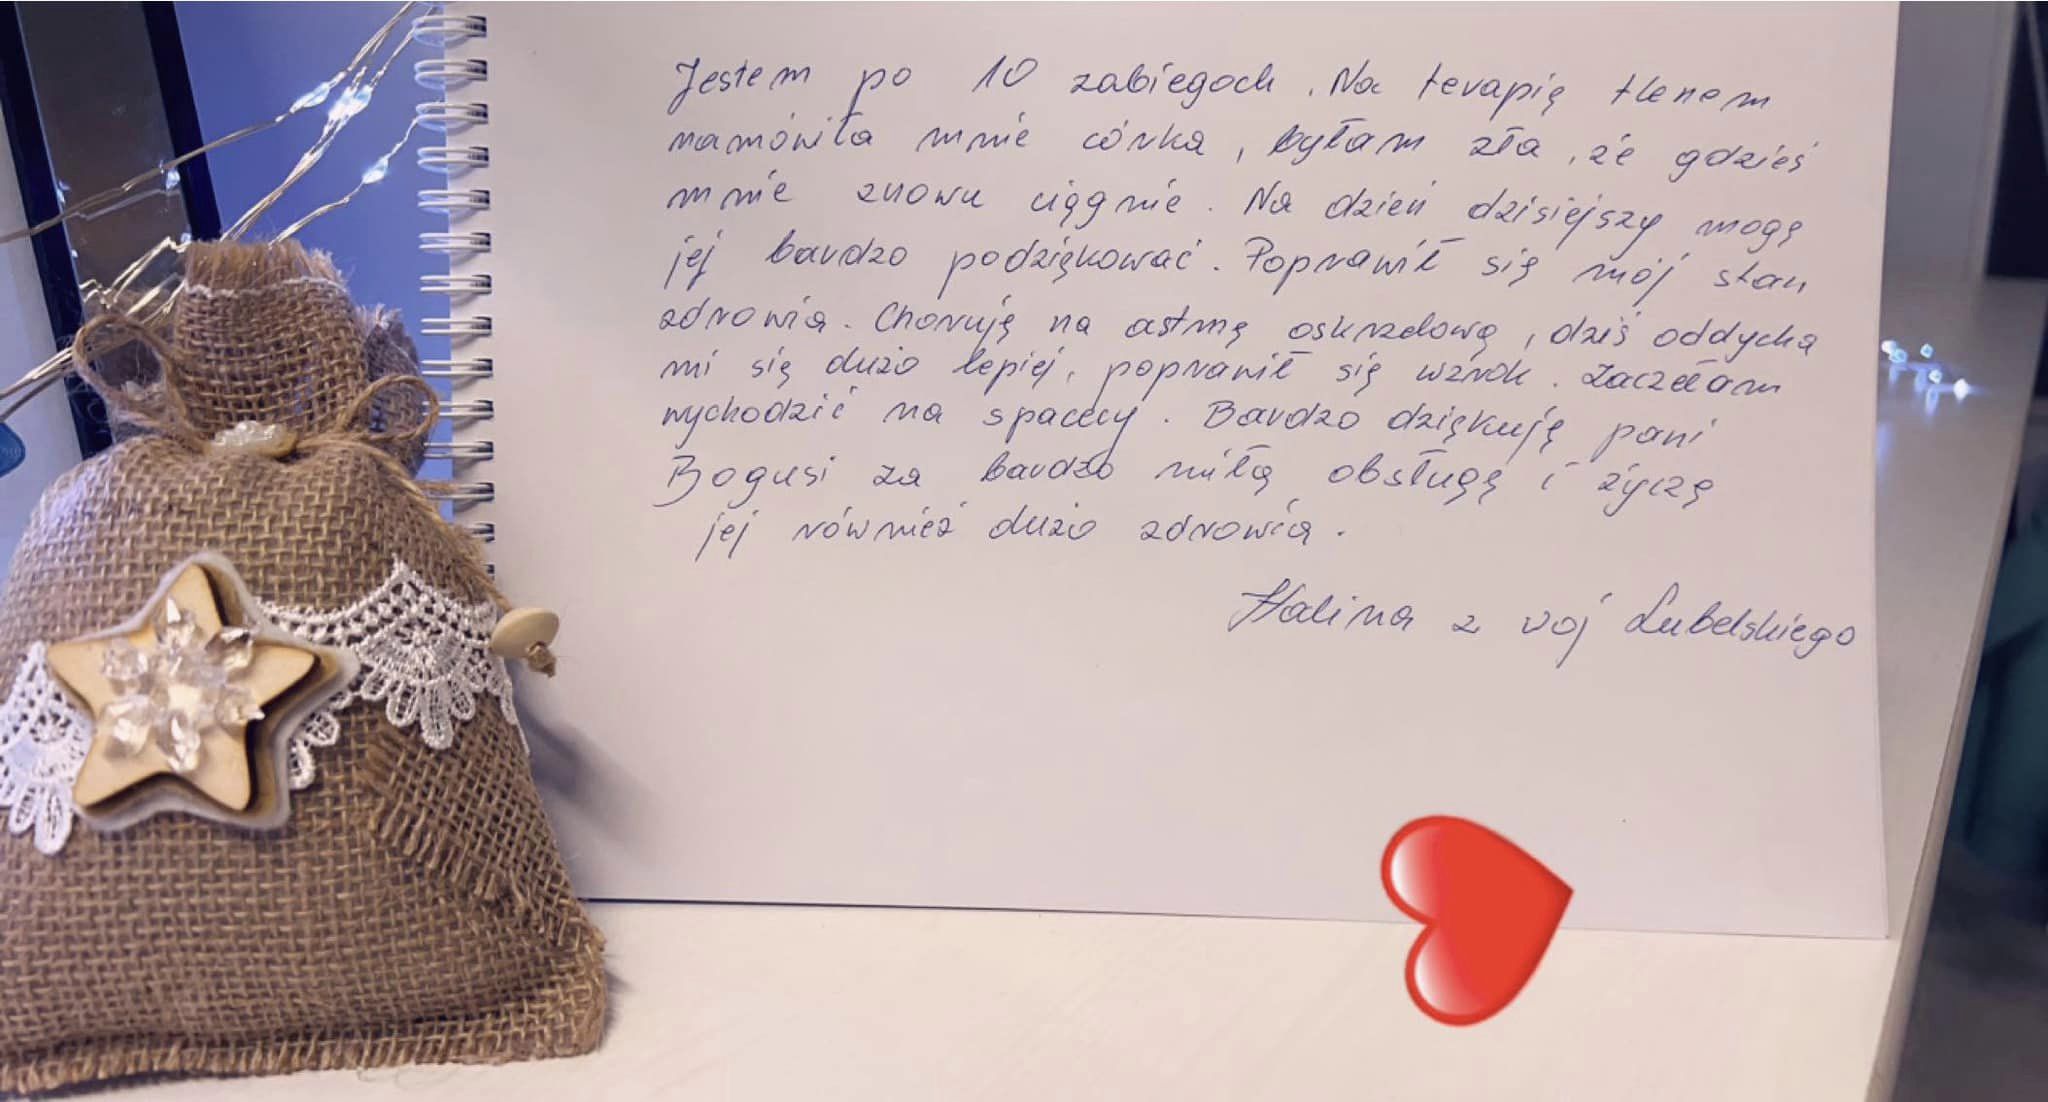 Jestem po 10 zabiegach. Na terapię tlenem
namówiła mnie córka, byłam zła, że gdzieś
mnie znowu ciągnie. Na dzień dzisiejszy mogę
jej bardzo podziękować. Poprawił się mój stan
zdrowia. Choruję na astmę oskrzelową, dziś oddycha
mi się dużo lepiej, poprawił się wzrok. Zaczełam
wychodzić na spacery. Bardzo dziękuję pani
Bogusi za bardzo miłą obsługę i życzę
jej również dużo zdrowia.
Halina z woj Lubelskiego